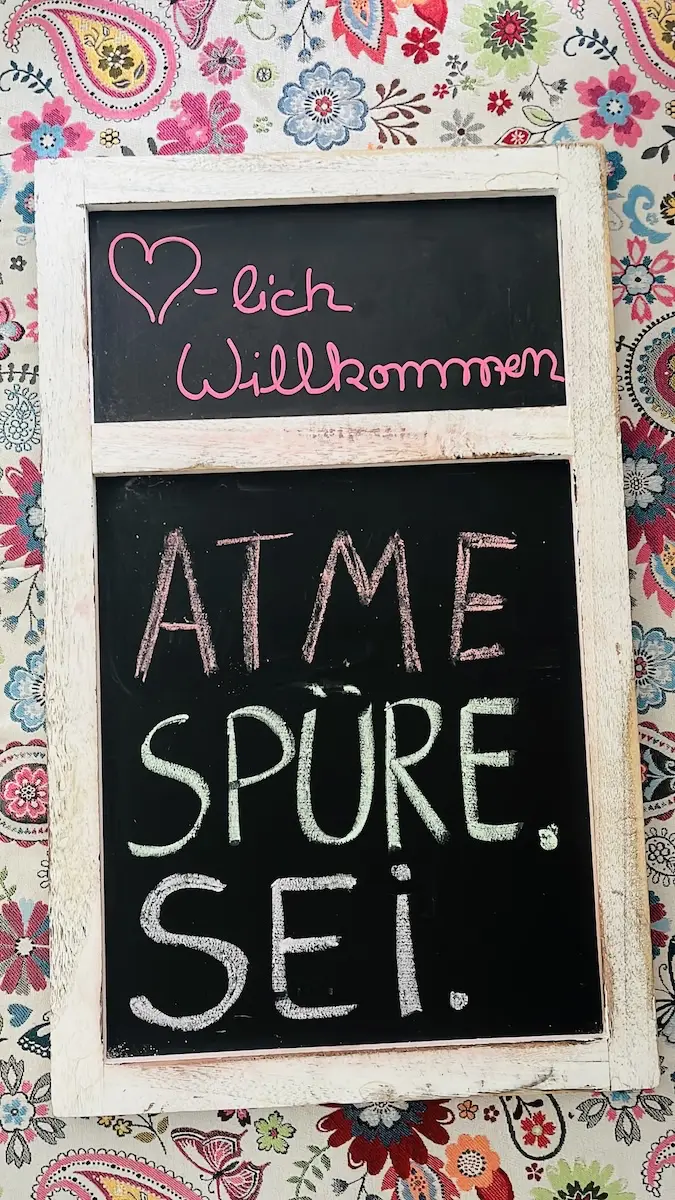 ♡-lich
Willkommen
ATME
SPÜRE.
SEi.